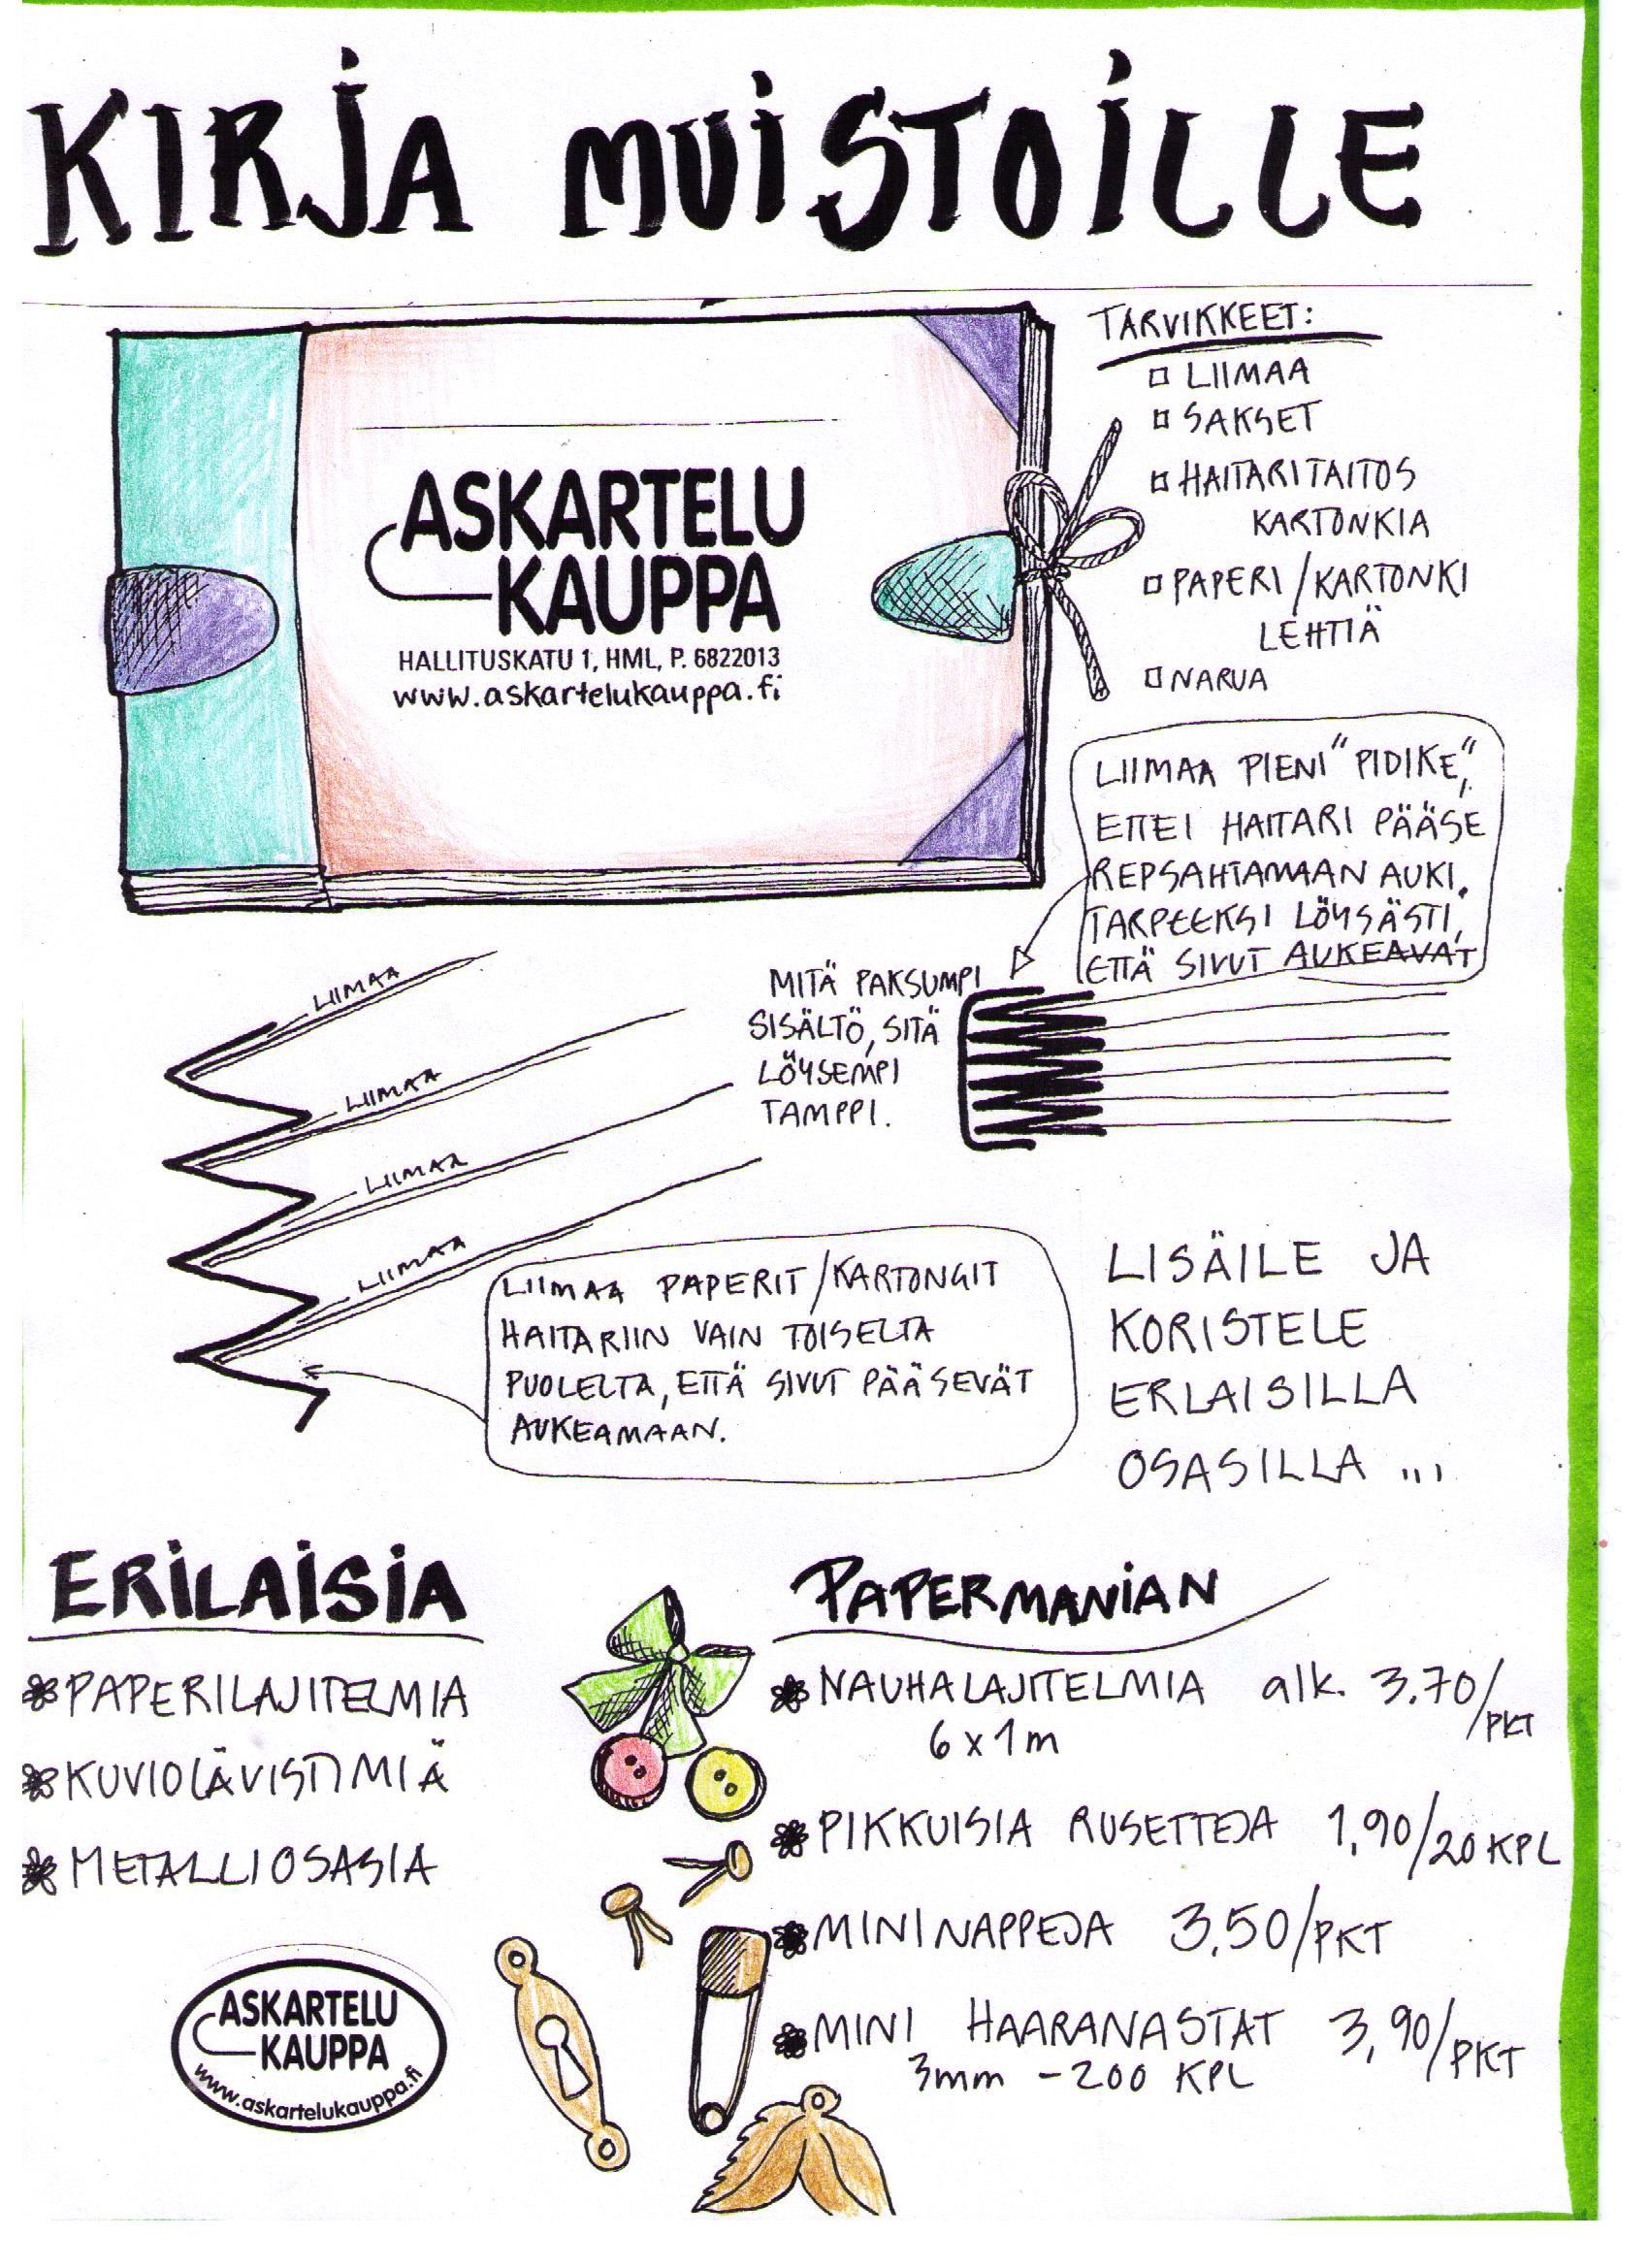 KIRJA MUISTOILLE
TARVIKKEET:
LIIMAA
SAKSET
HAITARITAITOS
KARTONKIA
PAPERI/KARTONKI
LEHTIÄ
NARUA
ASKARTELU
KAUPPA
HALLITUSKATU 1, HML, P. 6822013
www.askartelukauppa.fi
LIIMAA PIENI "PIDIKE",
ETTEI HAITARI PÄÄSE
REPSAHTAMAAN AUKI.
TARPEEKSI LÖYSÄSTI,
ETTÄ SIVUT AUKEAVAT
MITÄ PAKSUMPI
SISÄLTÖ, SITÄ
LÖYSEMPI
TAMPPI.
LIIMAA
LIIMAA
LIIMAA
LIIMAA
LIIMAA PAPERIT/KARTONGIT
HAITARIIN VAIN TOISELTA
PUOLELTA, ETTÄ SIVUT PÄÄSEVÄT
AUKEAMAAN.
LISÄILE JA
KORISTELE
ERLAISILLA
OSASILLA ...
ERILAISIA
PAPERILAJITELMIA
KUVIOLÄVISTIMIÄ
METALLIOSASIA
PAPERMANIAN
NAUHALAJITELMIA alk. 3.70/PKT
6 x 1m
PIKKUISIA RUSETTEJA 1,90/20 KPL
MININAPPEJA 3.50/PKT
MINI HAARANASTAT 3,90/PKT
3mm - 200 KPL
ASKARTELU
KAUPPA
www.askartelukauppa.fi